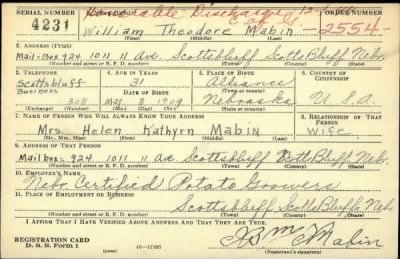 SERIAL NUMBER
Honorable Discharge
ORDER NUMBER
4231
William Theodore Mabin
2554
(First) (Middle) (Last)
2. ADDRESS (Print)
Mail-Box-924 1011 11 Ave Scottsbluff Scotts Bluff Nebr.
(Number and street or R. F. D. number) (Town) (County) (State)
3. TELEPHONE
4. AGE IN YEARS
5. PLACE OF BIRTH
6. COUNTRY OF CITIZENSHIP
Scottsbluff
31
Alliance
DATE OF BIRTH
(Town or county)
May 1909
Nebraska
U. S. A.
(Exchange) (Number)
(Mo.) (Day) (Yr.)
(State or country)
7. NAME OF PERSON WHO WILL ALWAYS KNOW YOUR ADDRESS
8. RELATIONSHIP OF THAT PERSON
Mrs. Helen Kathyrn Mabin
Wife
(Mr., Mrs., Miss) (First) (Middle) (Last)
9. ADDRESS OF THAT PERSON
Mail box-924 1011 11 Ave Scottsbluff Scotts Bluff Nebr.
(Number and street or R. F. D. number) (Town) (County) (State)
10. EMPLOYER'S NAME
Nebr. Certified Potato Growers
11. PLACE OF EMPLOYMENT OR BUSINESS
Scottsbluff Scotts Bluff Nebr.
(Number and street or R. F. D. number) (Town) (County) (State)
I AFFIRM THAT I HAVE VERIFIED ABOVE ANSWERS AND THAT THEY ARE TRUE.
REGISTRATION CARD
D. S. S. Form 1
(over)
Mabin
(Registrant's signature)